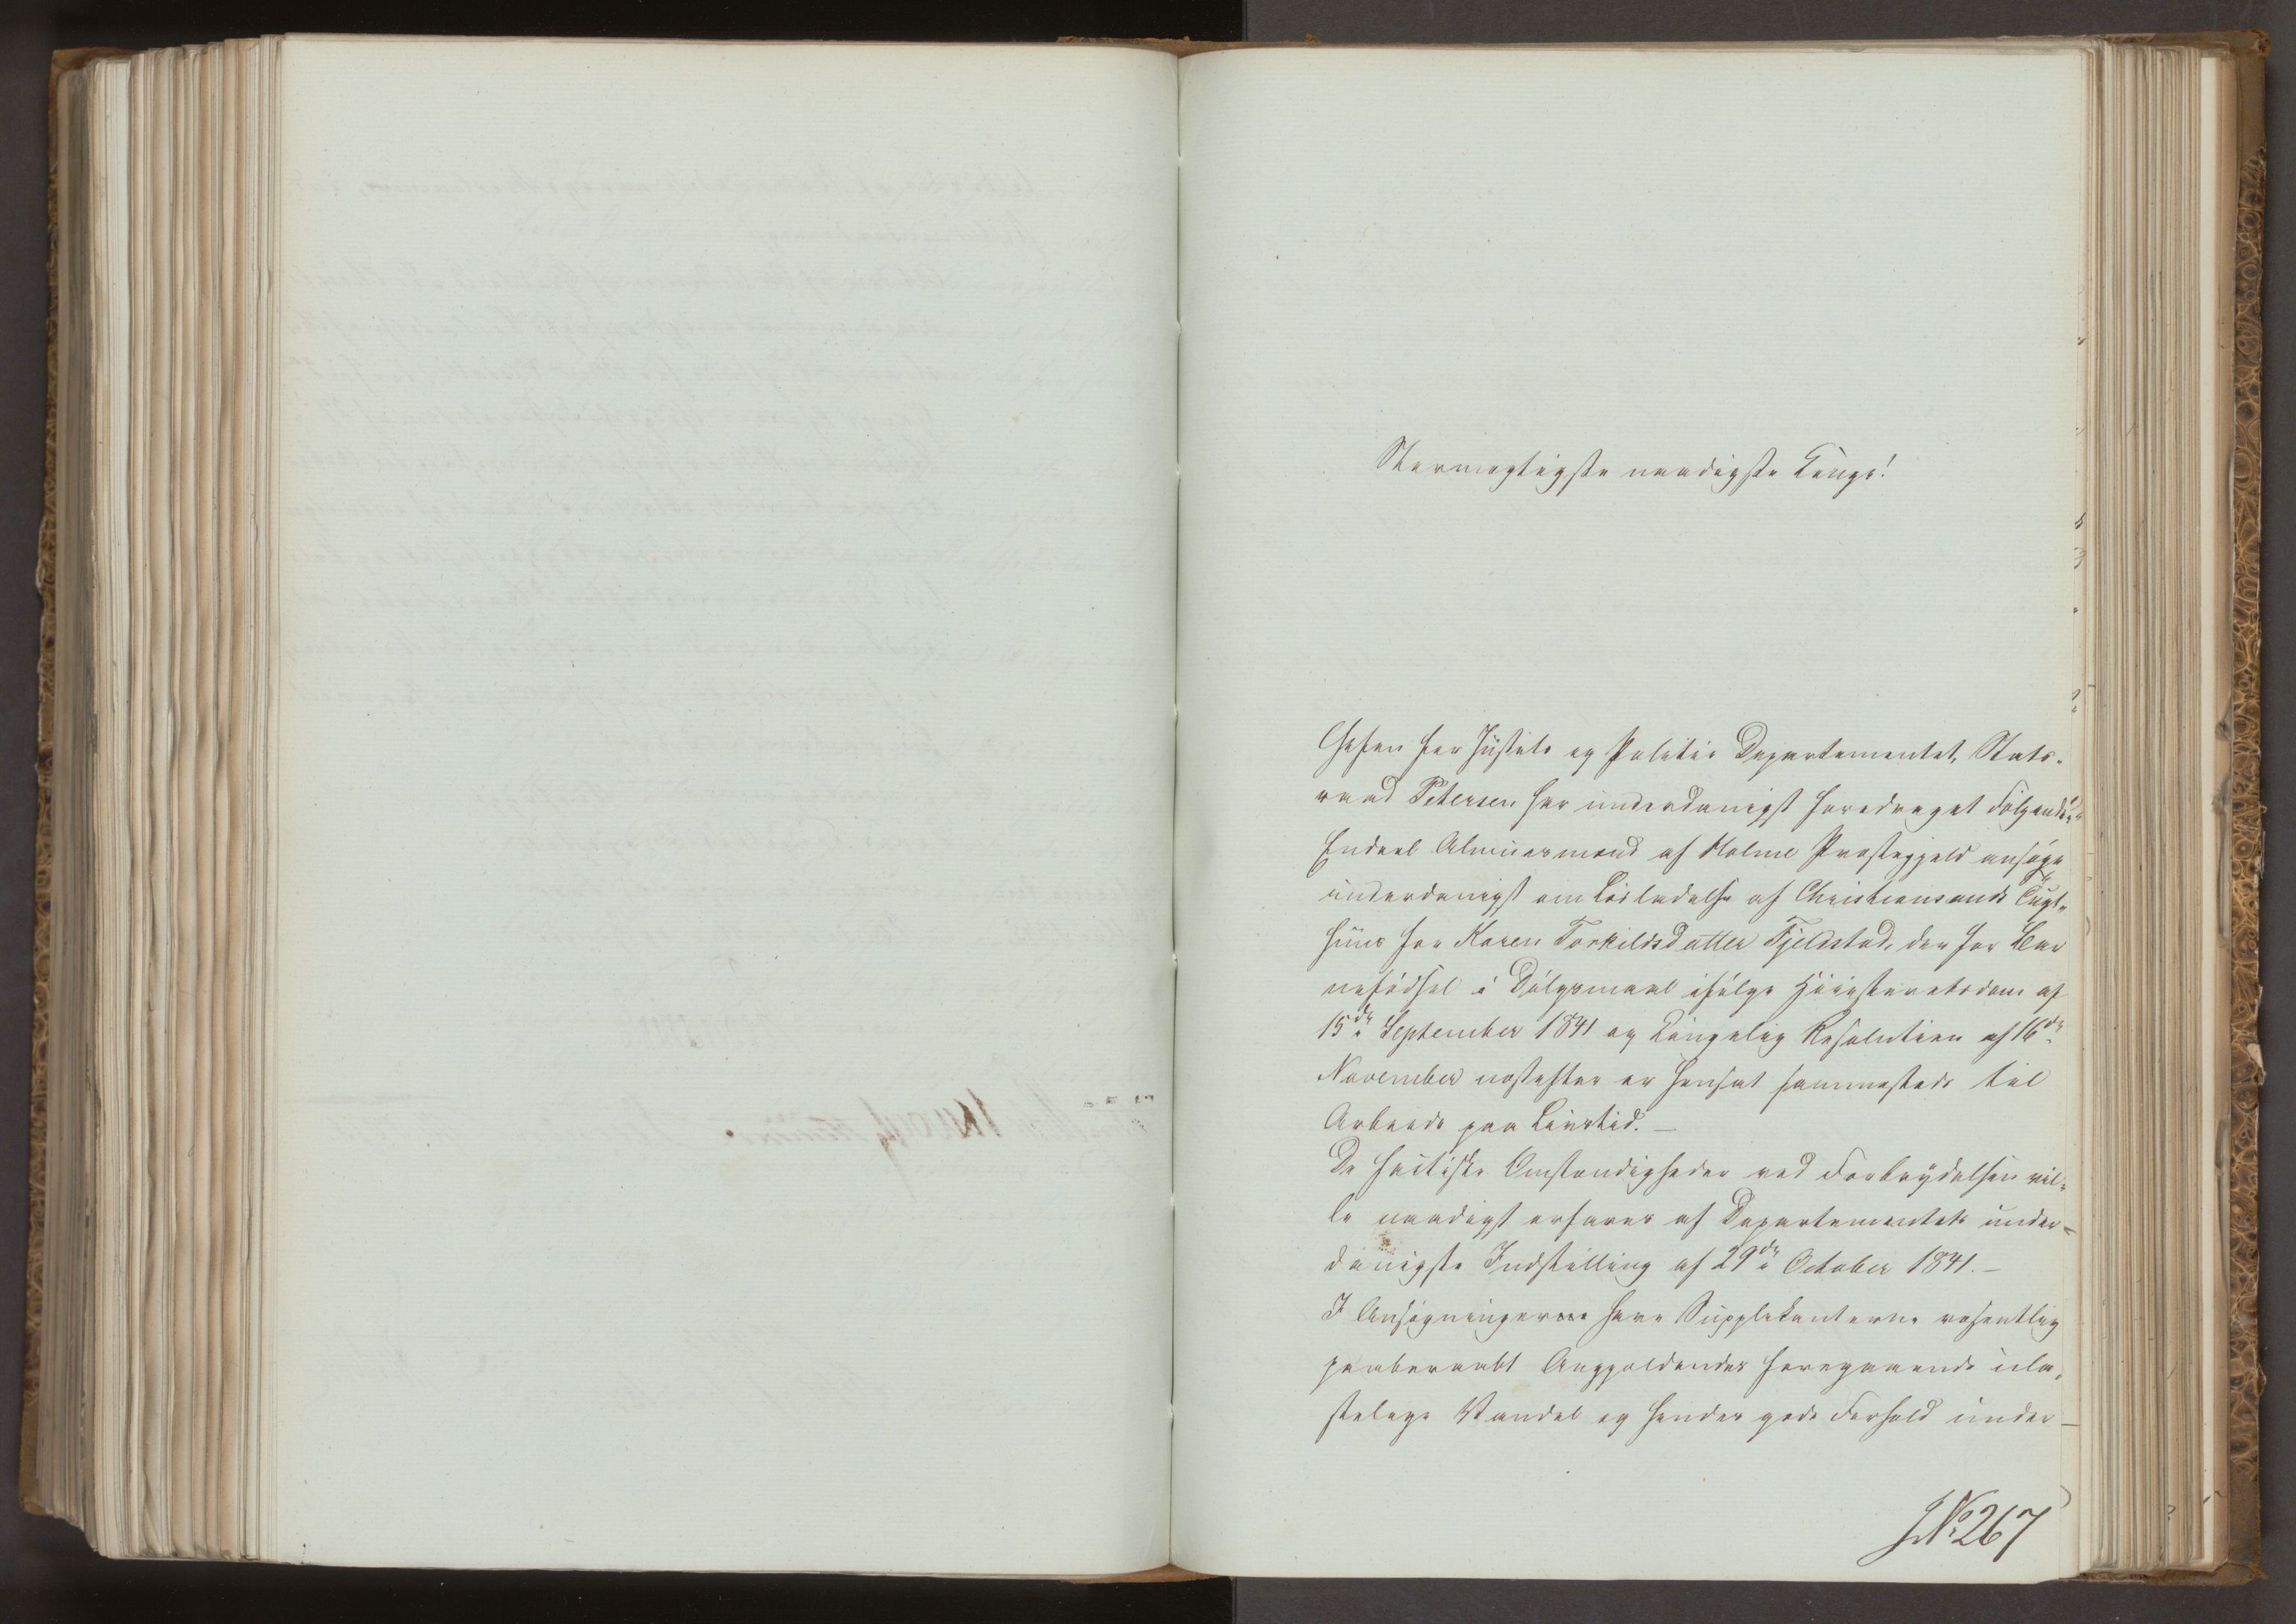 Stormægtigste naadigste Konge!
Chefen for Justits og Politie Departementet, Stats-
raad Petersen har underdanigst foredraget Følgende:"
Endeel Almuesmænd af Holme Præstegjeld ansøge
underdanigst om Løsladelse af Christiansands Tugt-
huus for Karen Torkildsdatter Fjeldstad, der for Bar
nefødsel i Dølgsmaal ifølge Høiesteretsdom af
15de September 1841 og Kongelig Resolution af 16de
November næstefter er hensat sammesteds til
Arbeide paa Livstid. —
De factiske Omstændigheder ved Forbrydelsen vil-
le naadigst erfares af Departementets under-
danigste Indstilling af 29de October 1841. —
I Ansøgningerne have Supplikanterne væsentlig
paaberaabt Angjældendes foregaaende ula-
stelige Vandel og hendes gode Forhold under-
JNo 267